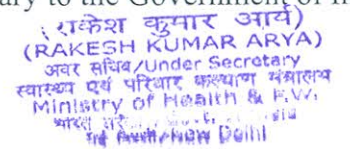 ary to the Government of I
(राकेश कुमार आर्य)
(RAKESH KUMAR ARYA)
अवर सचिव/Under Secretary
स्वास्थ्य एवं परिवार कल्याण मंत्रालय
Ministry of Health & F.W.
भारत
नई दिल्ली/New Delhi